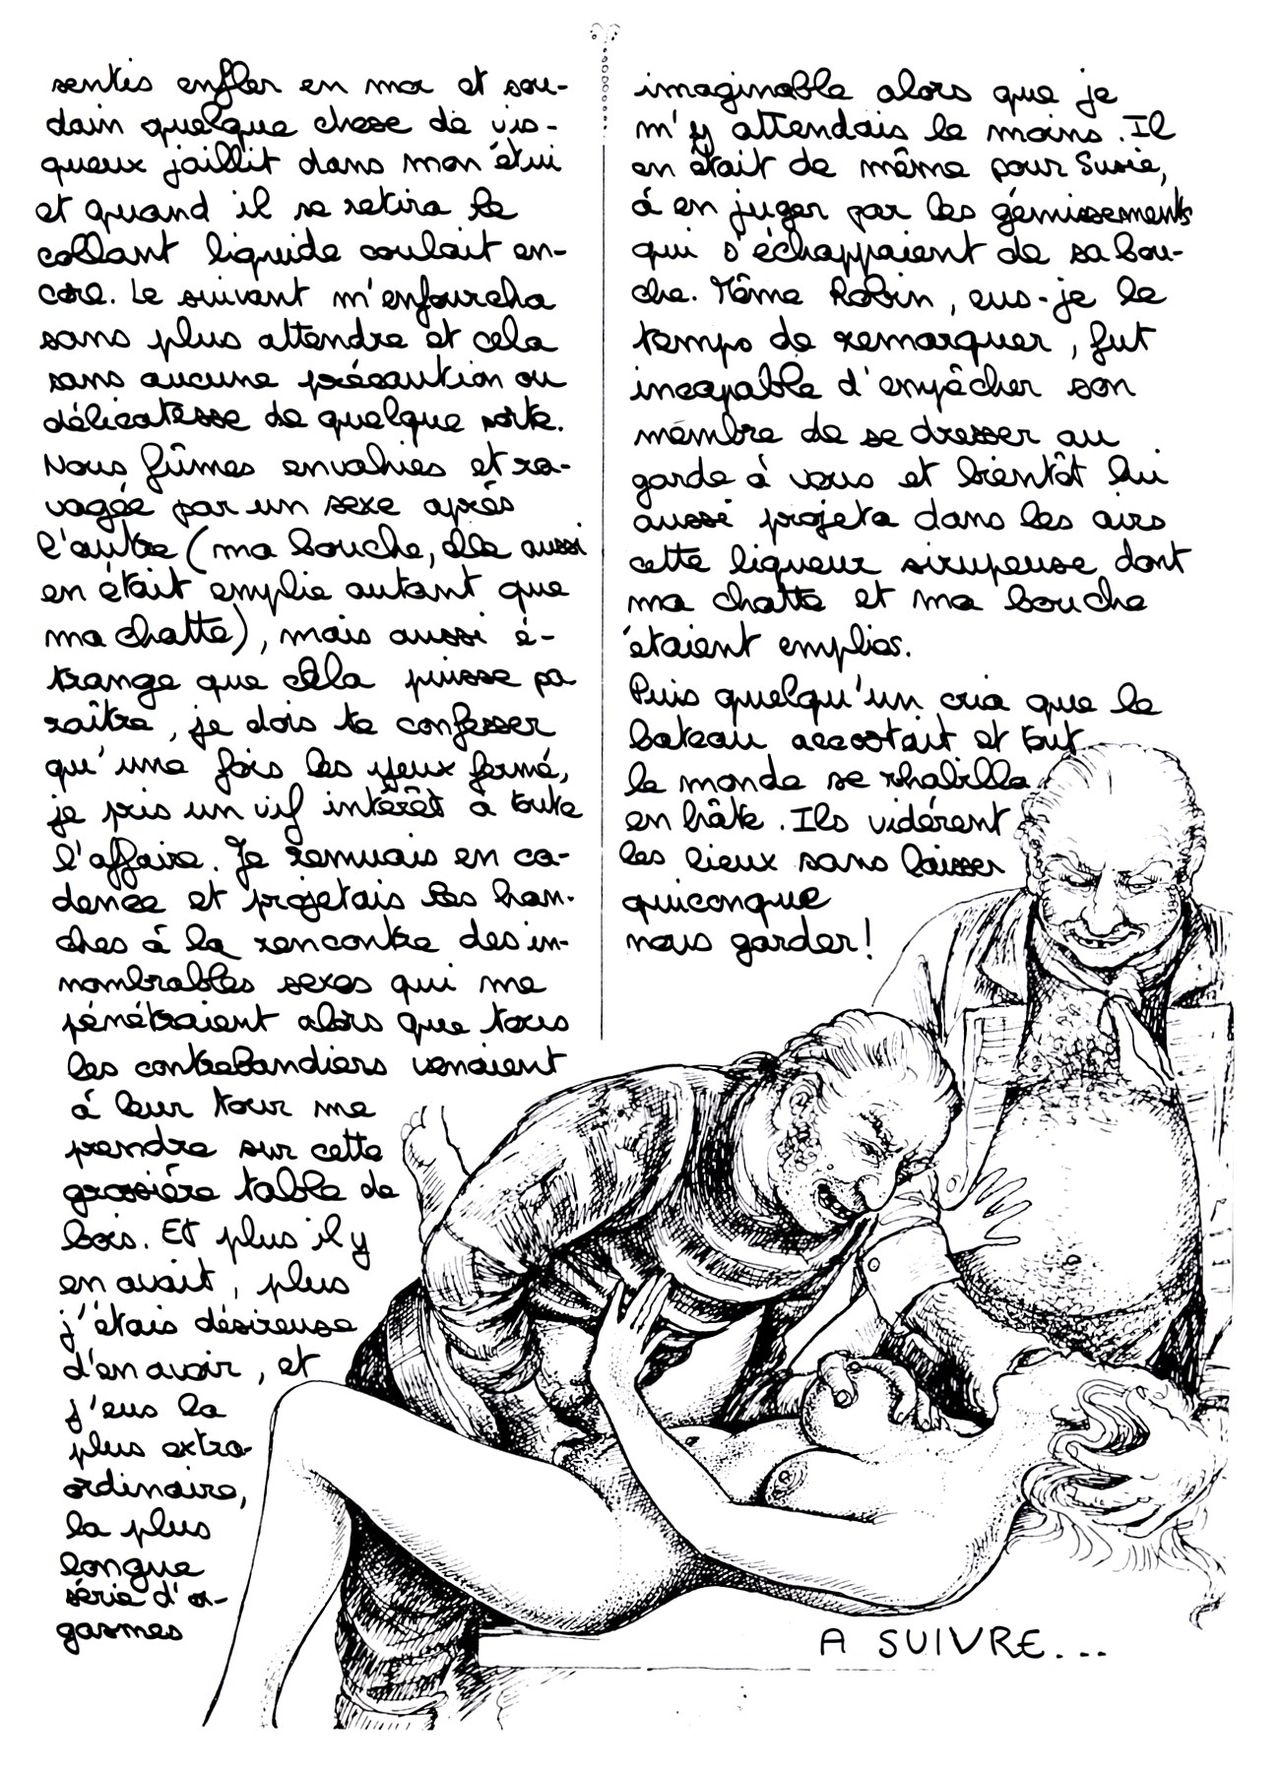 sentis enfler en moi et sou-
dain quelque chose de vis-
queux jaillit dans mon étui
et quand il se retira le
collant liquide coulait en-
core. Le suivant m'enfourcha
sans plus attendre et cela
sans aucune précaution ou
délicatesse de quelque sorte.
Nous fûmes envahies et ra-
vagée par un sexe après
l'autre (ma bouche, elle aussi
en était emplie autant que
ma chatte), mais aussi é-
trange que cela puisse pa-
raître, je dois te confesser
qu'une fois les yeux fermé,
je pris un vif intérêt à toute
l'affaire. Je remuais en ca-
dence et projetais les han-
ches à la rencontre des in-
nombrables sexes qui me
pénétraient alors que tous
les contrebandiers venaient
à leur tour me
prendre sur cette
grossière table de
bois. Et plus il y
en avait, plus
j'étais désireuse
d'en avoir, et
j'eus la
plus extra-
ordinaire,
la plus
longue
série d'or-
gasmes
imaginable alors que je
m'y attendais le moins. Il
en était de même pour Susie,
à en juger par les gémissements
qui s'échappaient de sa bou-
che. Même Robin, eus-je le
temps de remarquer, fut
incapable d'empêcher son
membre de se dresser au
garde à vous et bientôt lui
aussi projeta dans les airs
cette liqueur sirupeuse dont
ma chatte et ma bouche
étaient emplies.
Puis quelqu'un cria que le
bateau accostait et tout
le monde se rhabilla
en hâte. Ils vidèrent
les lieux sans laisser
quiconque
nous garder!
A SUIVRE...